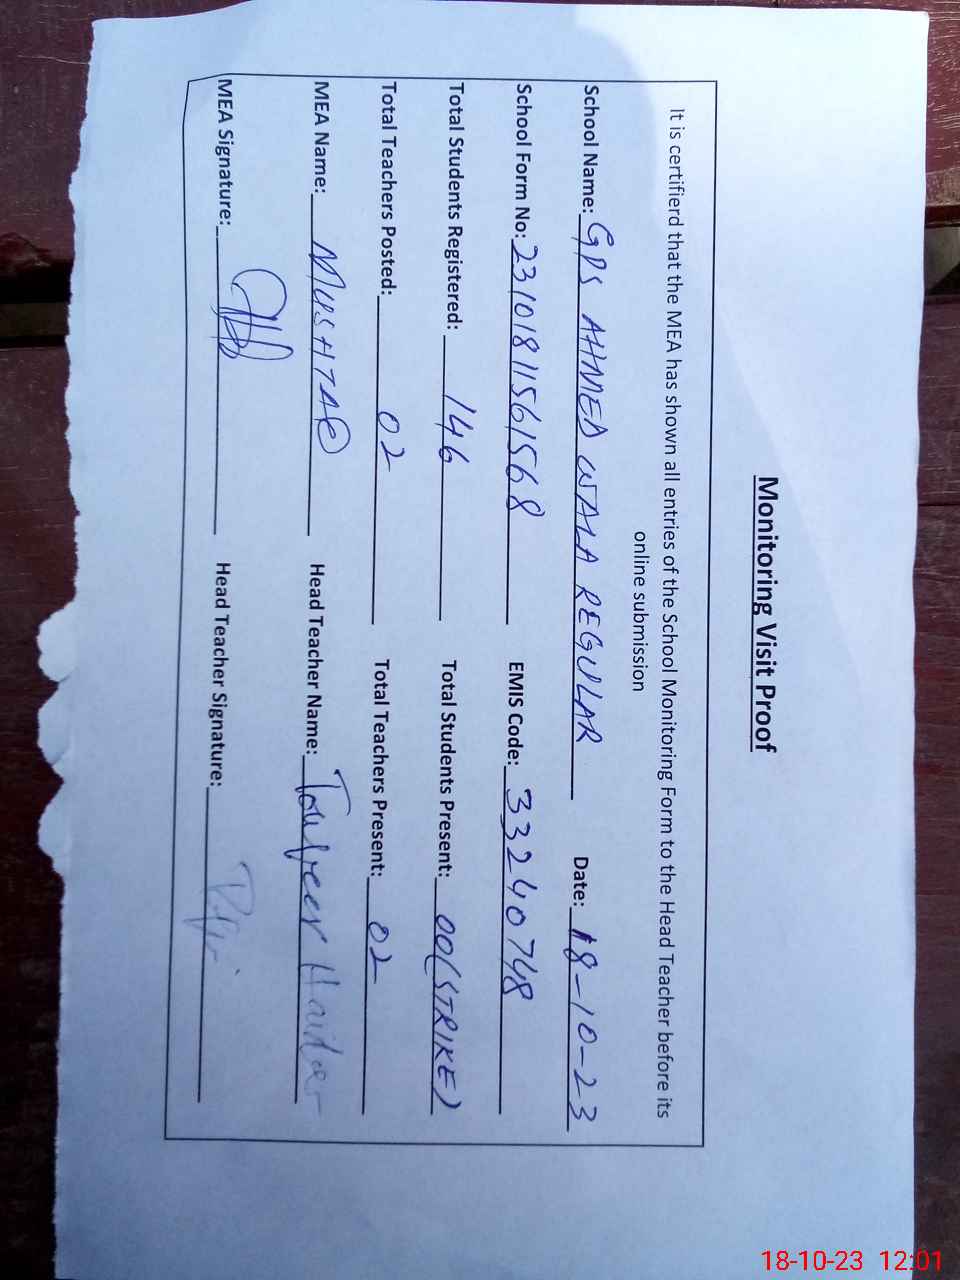 Monitoring Visit Proof
It is certifierd that the MEA has shown all entries of the School Monitoring Form to the Head Teacher before its
online submission
School Name: GPS AHMED WALA REGULAR Date: 18-10-23
School Form No: 23101811561568 EMIS Code: 33240748
Total Students Registered: 146 Total Students Present: 00(STRIKE)
Total Teachers Posted: 02 Total Teachers Present: 02
MEA Name: MUSHTAQ Head Teacher Name: Touqeer Haider
MEA Signature: Head Teacher Signature:
18-10-23 12:01